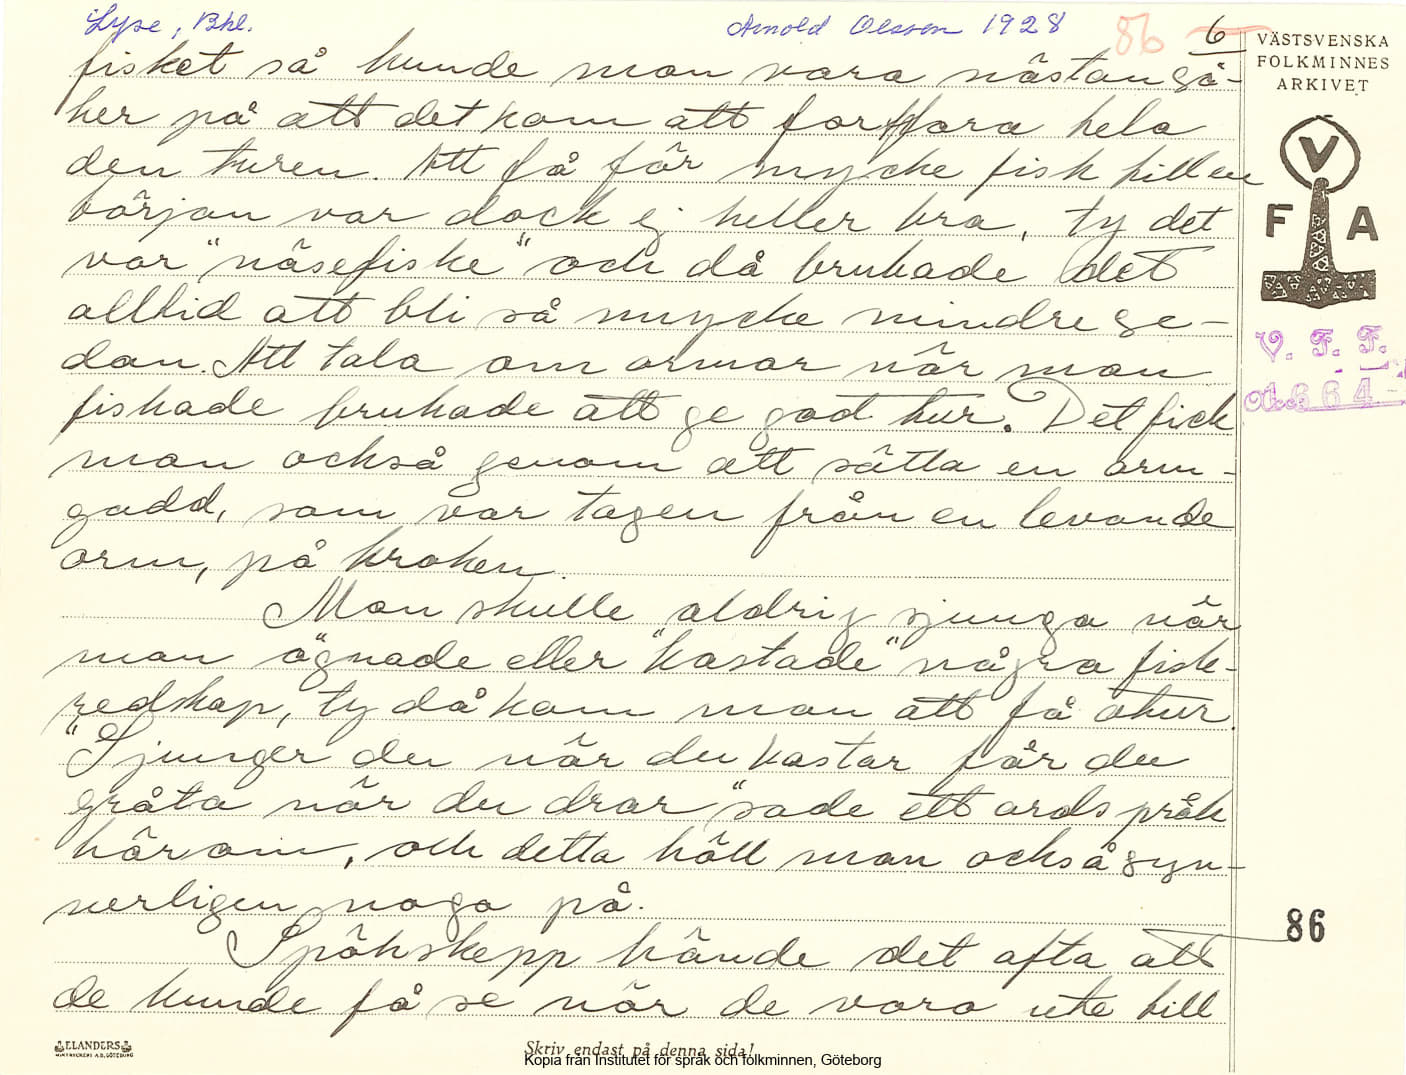 Lyse, Bhl.
Arnold Olsson 1928
86
6
VÄSTSVENSKA
FOLKMINNES
ARKIVET
V
F A
V. F. F.
Akc. 1664
fisket så kunde man vara nästan sä-
her på att det kom att fara hela
den turen. Att få för mycke fisk till en
början var dock ej heller bra, ty det
var "näsefiske" och då brukade det
alltid att bli så mycke mindre se-
dan. Att tala om ormar när man
fiskade brukade att ge god tur. Det fick
man också genom att sätta en orm-
gadd, som var tagen från en levande
orm, på kroken.
Man skulle aldrig sjunga när
man "ägnade eller "kastade" några fisk-
redskap, ty då kom man att få otur.
"Sjunger du när du kastar får du
gråta när du drar" sade ett ordspråk
härom, och detta höll man också syn-
nerligen noga på.
Spökskepp hände det ofta att
de kunde få se när de voro ute till
86
ELANDERS
BOKTRYCKERI A.B. GÖTEBORG
Skriv endast på denna sida!
Kopia från Institutet för språk och folkminnen, Göteborg